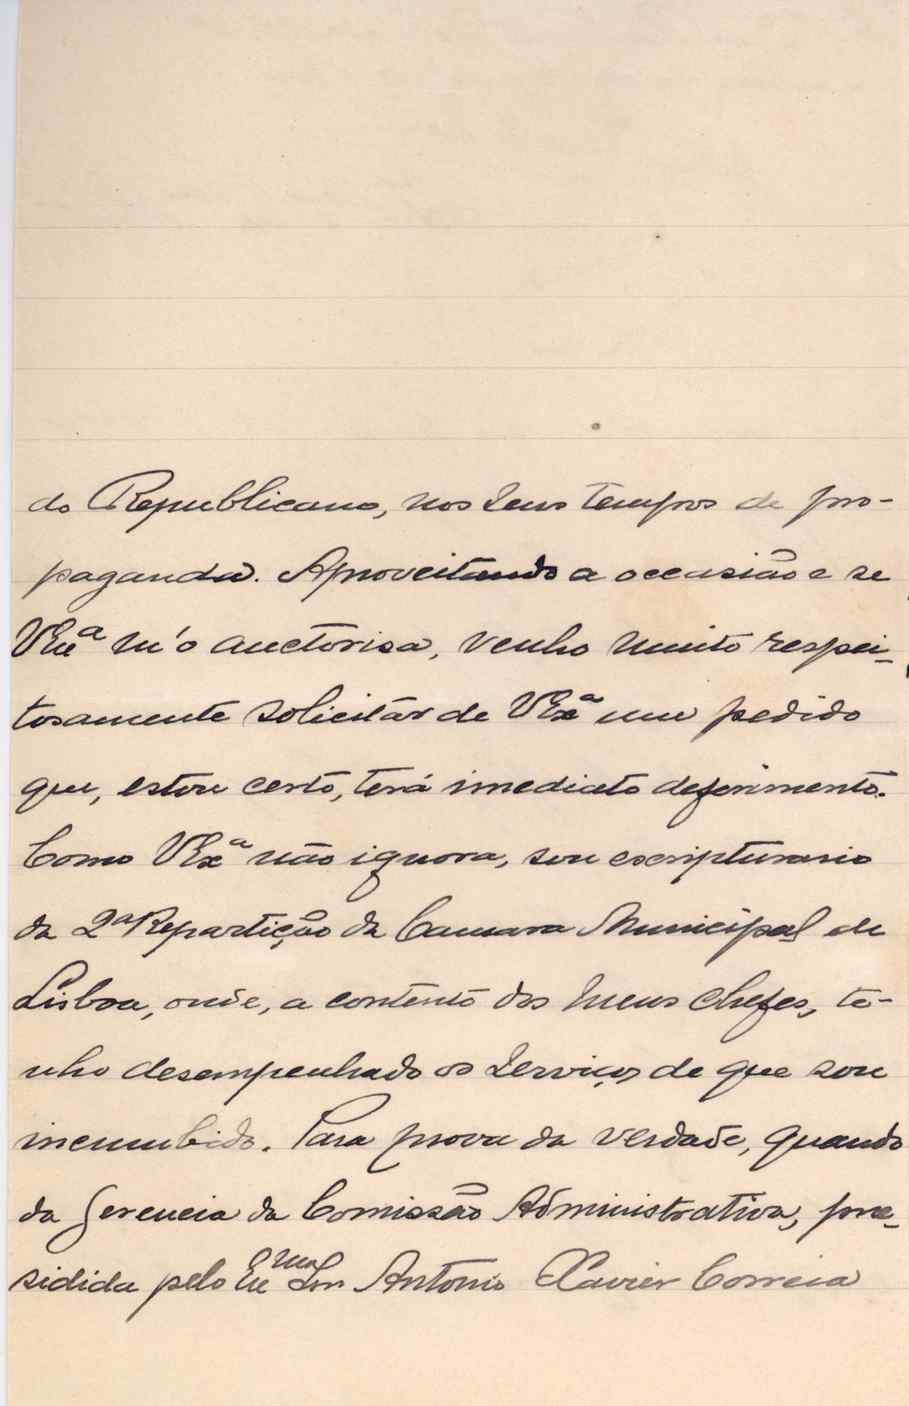 do Republicano, nos seus tempos de pro-
paganda. Aproveitando a occasião e se
VExª m'o auctorisa, venho muito respei-
tosamente solicitar de VExª um pedido
que, estou certo, terá imediato deferimento.
Como VExª não ignora, sou escripturario
da 2ª Repartição da Camara Municipal de
Lisboa, onde, a contento dos meus chefes, te-
nho desempenhado os serviços de que sou
incumbido. Para prova da verdade, quando
da gerencia da Comissão Administrativa, pre-
sidida pelo Exmo Snr Antonio Xavier Correia